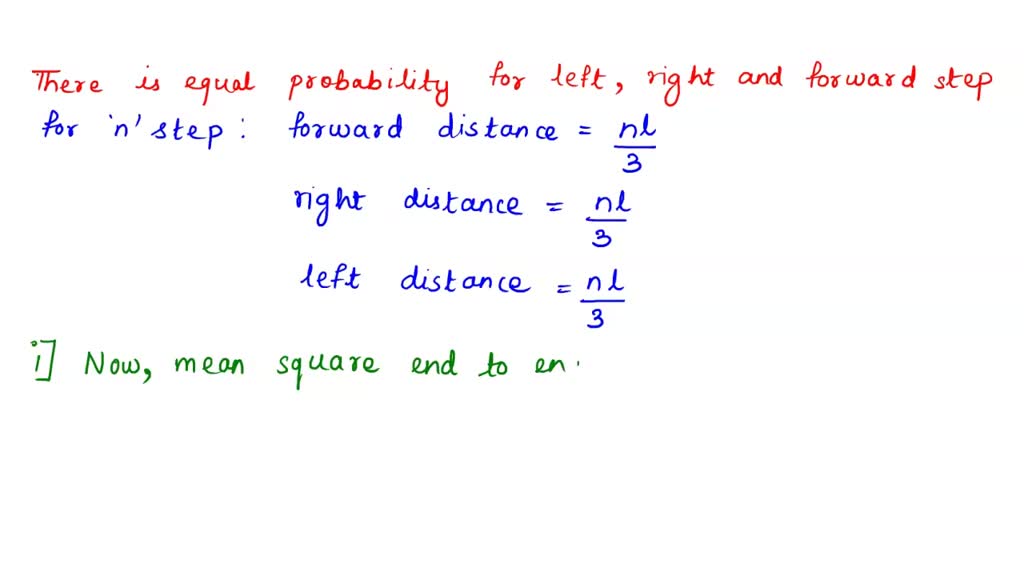 There is equal probability for left, right and forward step
for 'n' step : forward distance = nl/3
right distance = nl/3
left distance = nl/3
i] Now, mean square end to en